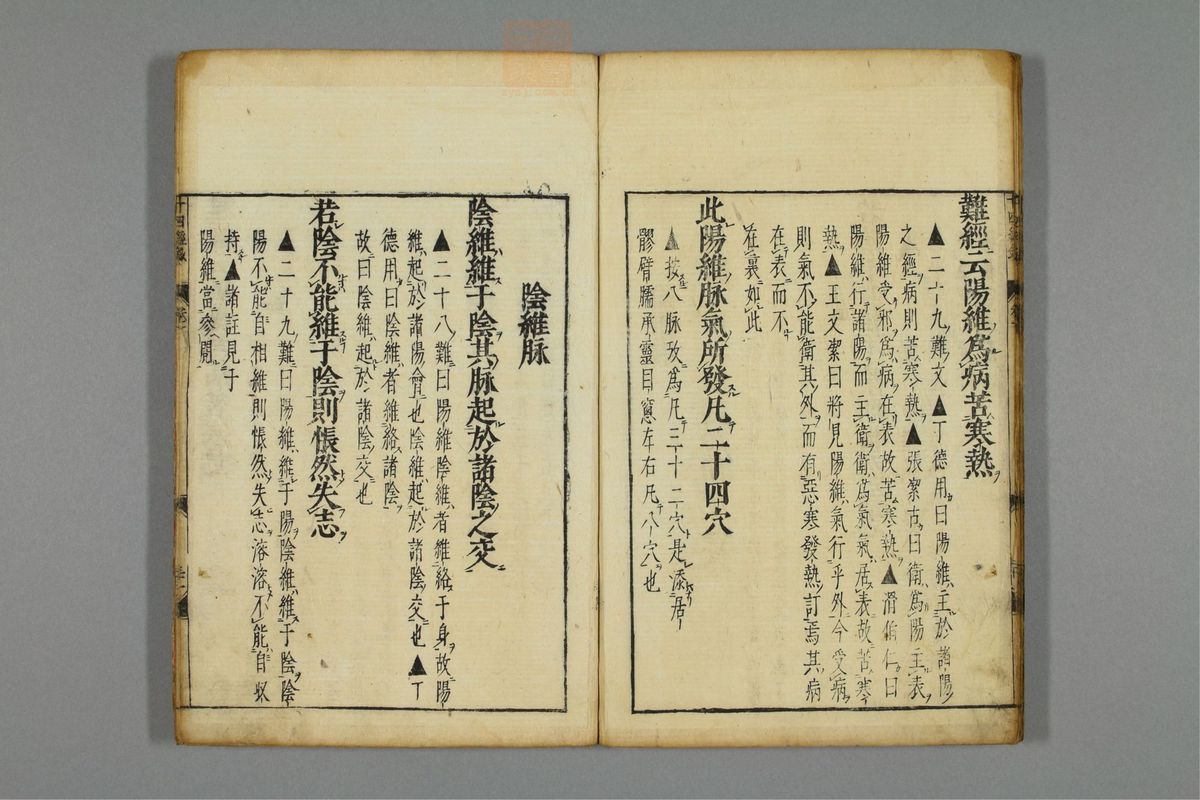 難經云陽維爲病苦寒熱
▲二十九難文▲丁德用曰陽維主於諸陽
之經病則苦寒熱▲張絜古曰衛爲陽主表
陽維受邪爲病在表故苦寒熱▲滑伯仁曰
陽維行諸陽而主衛衛爲氣氣居表故苦寒
熱▲王文絜曰將見陽維氣行乎外今受病
則氣不能衛其外而有惡寒發熱訂焉其病
在表而不
在裏如此
此陽維脉氣所發凡二十四穴
▲按八脉攷爲凡三十二穴是添居
髎臂臑承靈目窻左右凡八穴也
陰維脉
陰維維于陰其脉起於諸陰之交
▲二十八難曰陽維陰維者維絡于身故陽
維起於諸陽會也陰維起於諸陰交也▲丁
德用曰陰維者維絡諸陰
故曰陰維起於諸陰交也
若陰不能維于陰則悵然失志
▲二十九難曰陽維維于陽陰維維于陰陰
陽不能自相維則悵然失志溶溶不能自収
持▲諸註見于
陽維當參閲